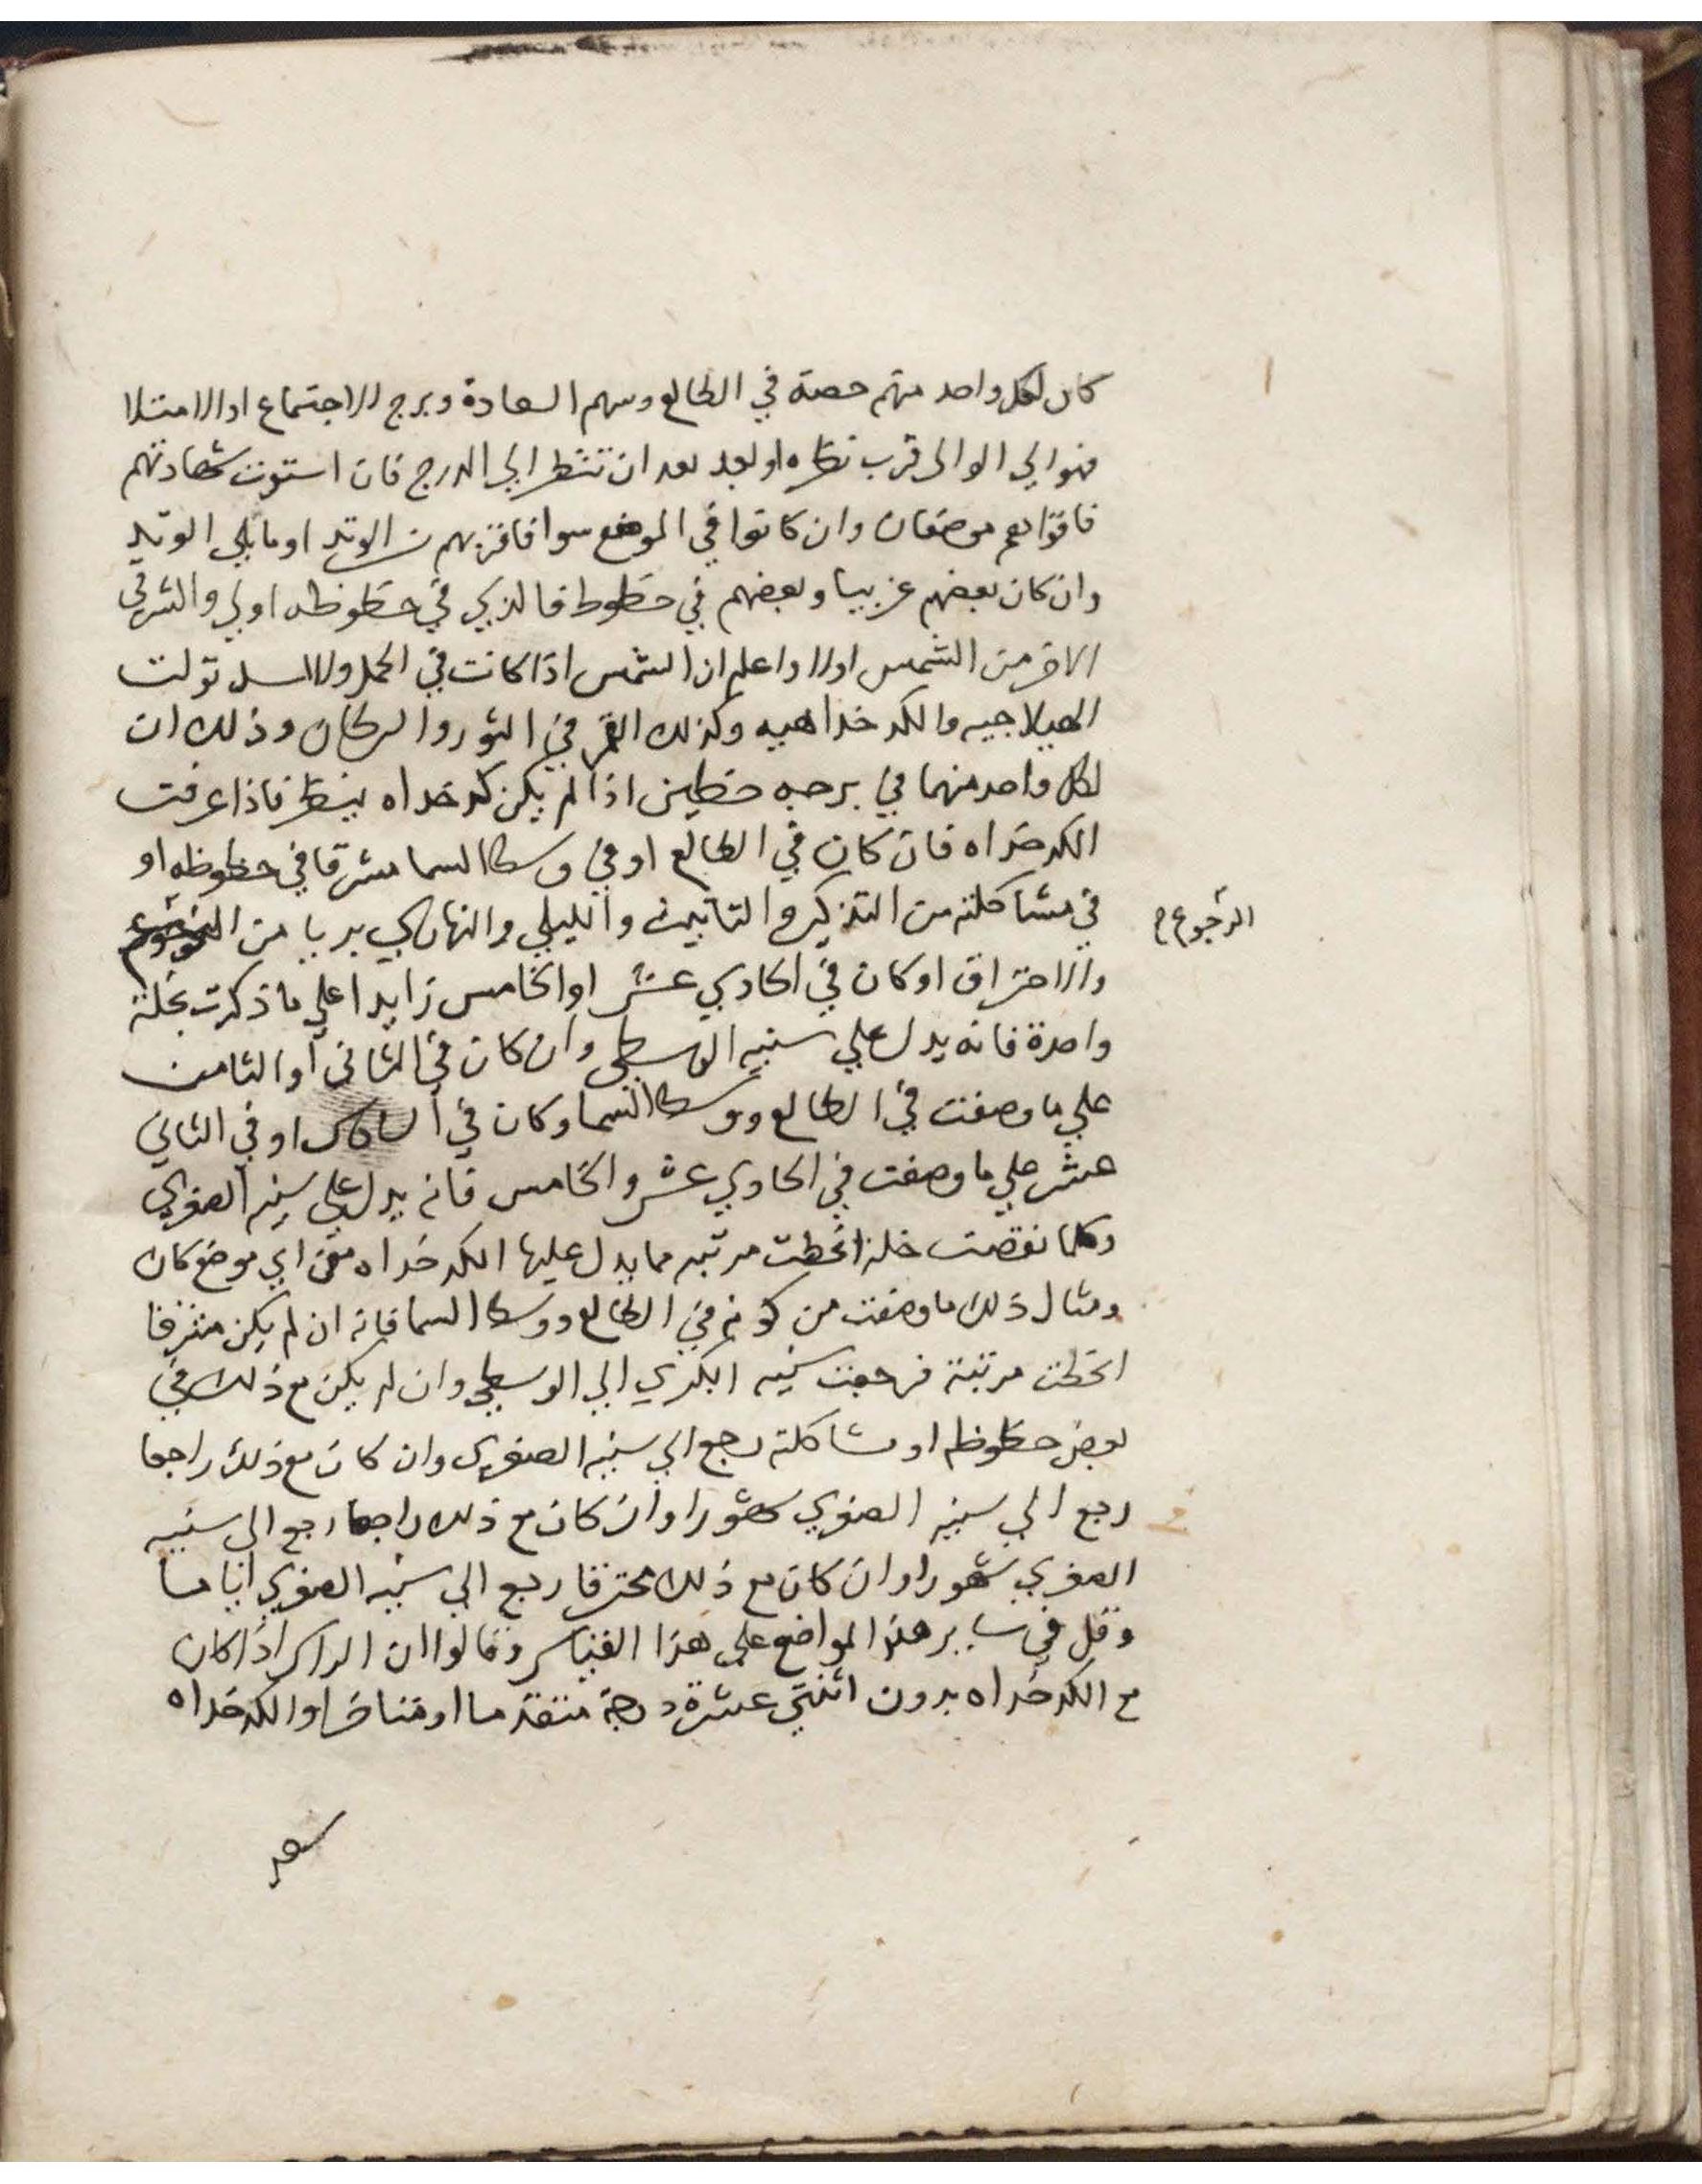 كان لكل واحد منهم حصة في الطالع وسهم السعادة وبرج الاجتماع او الامتلا
فهو الي الوالى قرب نظره او بعد بعد ان تنظر الي الدرج فان استوت شهادتهم
فاقواهم موضعان وان كانوا في الموضع سوا فاقربهم من الوتد او ما يلي الوتد
وان كان بعضهم غريبا وبعضهم في حظوظ فالذي في حظوظه اولي والشرقي
الاقرمن الشمس اولا واعلم ان الشمس اذا كانت في الحمل والاسد تولت
الهيلاجيه والكدخداهيه وكذلك القمر في الثور والسرطان وذلك ان
لكل واحد منهما في برجه حظين اذا لم يكن كدخداه ينظر فاذا عرفت
الكدخداه فان كان في الطالع او في وسط السما مشرقا في حظوظه او
في مشاكلته من التذكير والتانيث والليلي والنهاري بريا من
الرجوع
والاحتراق او كان في الحادي عشر او الخامس زايدا علي ما ذكرت بخلة
واحدة فانه يدل علي سنيه الوسطي وان كان في الثاني او الثامن
علي ما وصفت في الطالع ووسط السما وكان في السادس او في الثاني
عشر علي ما وصفت في الحادي عشر والخامس فانه يدل علي سنيه الصغري
وكلما نقصت خلة انحطت مرتبه مما يدل عليها الكدخداه في اي موضع كان
ومثال ذلك ما وصفت من كونه في الطالع ووسط السما فانه ان لم يكن مشرقا
انحطت مرتبة فرجعت سنيه الكبري الي الوسطي وان لم يكن مع ذلك في
بعض حظوظه او مشاكلته رجع الي سنيه الصغري وان كان مع ذلك راجعا
رجع الي سنيه الصغري شهورا وان كان مع ذلك راجعا رجع الى سنيه
الصغري شهورا وان كان مع ذلك محترقا رجع الي سنيه الصغري اياما
وقل في ساير هذه المواضع علي هذا القياس وقالوا ان الراس اذا كان
مع الكدخداه بدون اثنتي عشرة درجة متقدما او متاخرا والكدخداه